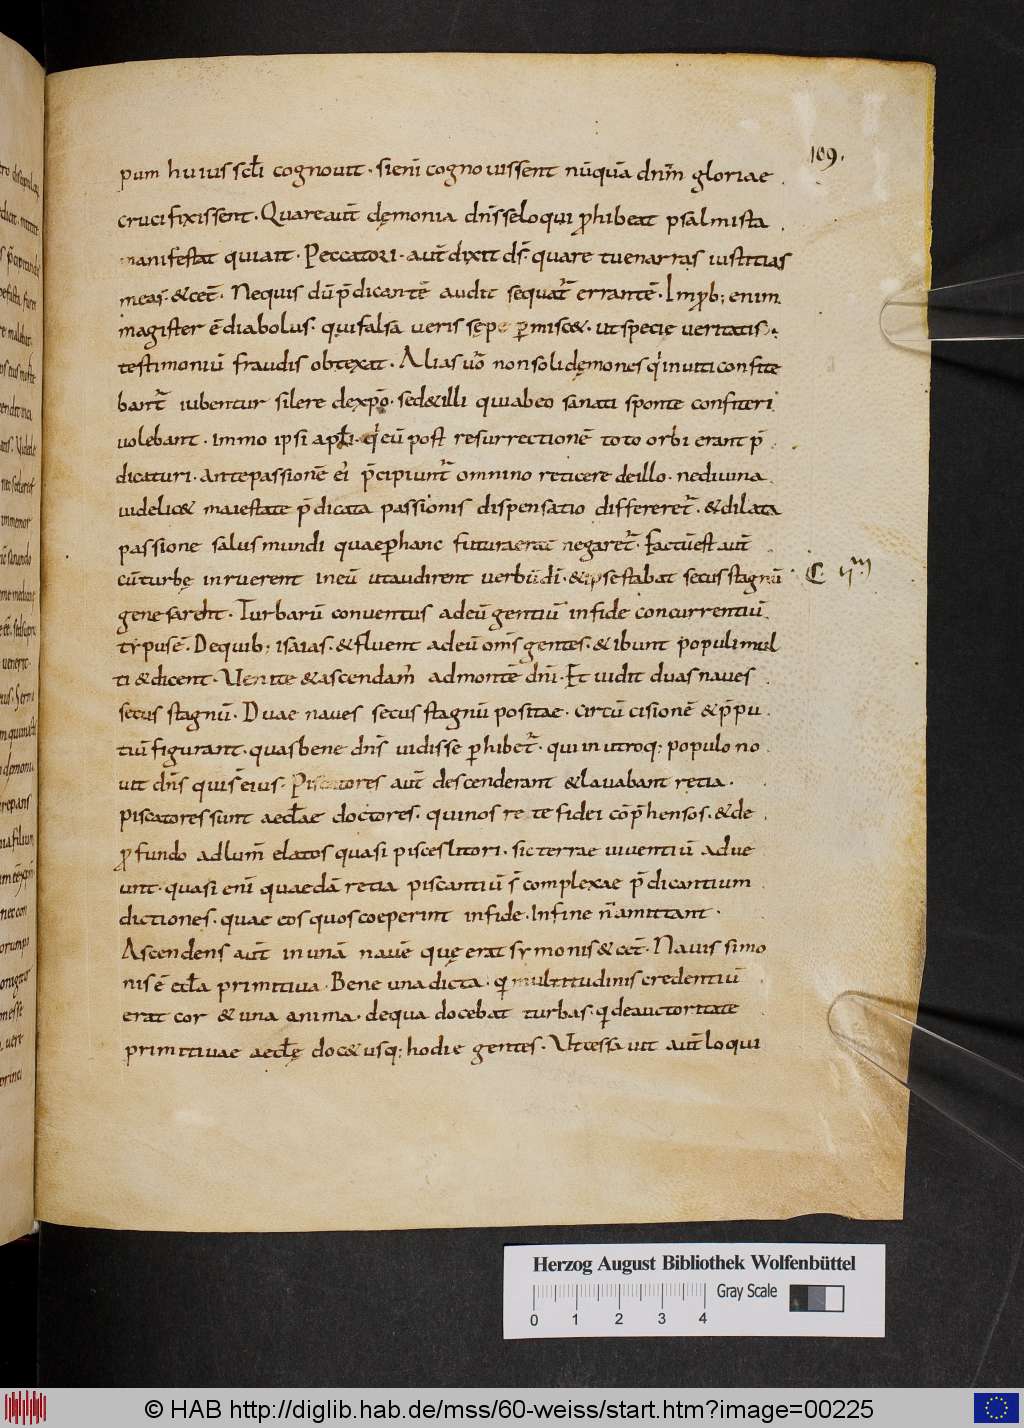 109.
pum huius scł̄i cognouit · si eni cognouissent nūquā dn̄m gloriae
crucifixissent · Quare aut̄ dęmonia dn̄s se loqui ꝓhibeat psalmista
manifestat qui ait · Peccatori · aut̄ dixit ds̄ · quare tu enarras iustitias
meas · & cet̄ · Nequis dū p̄dicantē audit sequat̄ errantē · Improb; enim
magister ē diabolus · qui falsa ueris sępe ꝑmisc& · ut specie ueritatis
testimoniū fraudis obtexat · Alias ū̄o non soli dęmones qͥ inuiti confite
bant̄ iubentur silere de xp̄o · sed & illi qui ab eo sanati sponte confiteri
uolebant · immo ipsi apł̄i · qͥ eū post resurrectionē toto orbi erant p̄
dicaturi · ante passionē ei p̄cipiunt̄ omnino reticere de illo · ne diuina
uidelic& maiestate p̄dicata passionis dispensatio differeret̄ · & dilata
passione salus mundi quae ꝑ hanc futura erat negaret̄ · Factū est aut̄
cū turbę inruerent in eū ut audirent uerbū dī · & ipse stabat secus stagnū
C IIII
gene sareht · Turbarū conuentus ad eū gentiū in fide concurrentiū
typus ē · De quib; isaias · & fluent ad eū om̄s gentes · & ibunt populi mul
ti & dicent · Venite & ascendam̄ ad montē dn̄i · Et uidit duas naues
secus stagnū · Duae naues secus stagnū positae · circū cisionē & p̄pu
tiū figurant · quas bene dn̄s uidisse ꝑhibet̄ · qui in utroq; populo no
uit dn̄s qui s̄ eius · Piscatores aut̄ descenderant & lauabant rętia ·
piscatores sunt aeclae doctores · qui nos rete fidei cōp̄hensos · & de
ꝓfundo ad lum̄ elatos quasi pisces litori · sic terrae uiuentiū adue
unt · quasi eni quaedā retia piscantiū s̄ complexae p̄dicantium
dictiones · quae eos quos coeperint in fide · Infine n̄ amittant ·
Ascendens aut̄ in unā nauē quę erat symonis & cet̄ · Nauis simo
nis ē eccła primitiua · Bene una dicta · qͥ multitudinis credentiū
erat cor & una anima · de qua docebat turbas · qͥ de auctoritate
primitiuae aeclę doc& usq; hodie gentes · Ut cessauit aut̄ loqui
Herzog August Bibliothek Wolfenbüttel
Gray Scale
0 1 2 3 4
© HAB http://diglib.hab.de/mss/60-weiss/start.htm?image=00225